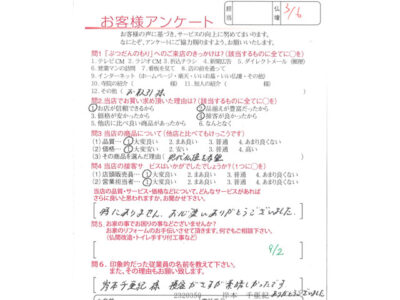 担当
仏壇
3/6
お客様アンケート
お客様の声に基づき、サービスの向上に努めてまいります。
なにとぞ、アンケートにご協力賜りますよう、お願いいたします。
問1「ぶつだんのもり」へのご来店のきっかけは?(該当するものに全てに○を)
1. テレビCM 2. ラジオCM 3. 折込チラシ 4. 新聞広告 5. ダイレクトメール(郵便)
6. 営業マンの訪問 7. 看板を見て 8. 店の前を通って
9. インターネット(ホームページ・楽天・いいお墓・いい仏壇・その他)
10. 寺院の紹介( ) 11. 知人の紹介( 様)
12. その他( お取引様
問2. 当店でお買い求め頂いた理由は?(該当するものに全てに○を)
①お店が信頼できるから ②品揃えが豊富だったから
3. 価格が安かったから 4. 接客が良かったから
5. 他店に比べ良い商品があったから 6. なんとなく
問3 当店の商品について(他店と比べてもけっこうです)
(1) 品質…①大変良い 2. まあ良い 3. 普通 4. あまり良くない
(2) 価格…①大変安い 2. 安い 3. 普通 4. 高い
(3) その商品を選んだ理由(
問4 当店の接客サービスはいかがでしたでしょうか?(1つに○を)
(1) 店頭販売員…①大変良い 2. まあ良い 3. 普通 4. あまり良くない
(2) 営業担当者…①大変良い 2. まあ良い 3. 普通 4. あまり良くない
当店の品質・サービス・価格などについて、どんなサービスがあれば
さらに良いと思われますか、お聞かせ下さい。
特にありません。お世話ありがとうございました。
問5 お家の事でお困りの事などございませんか?
お家のリフォームのお手伝いさせて頂きます。何でもご相談下さい。
(仏間改造・トイレ手すり付工事など)
9/2
問6. 印象的だった従業員の名前を教えて下さい。
また、その理由もお聞かせ下さい。
岸本千亜紀様
2320350 岸本 千亜紀
ありがとうございました